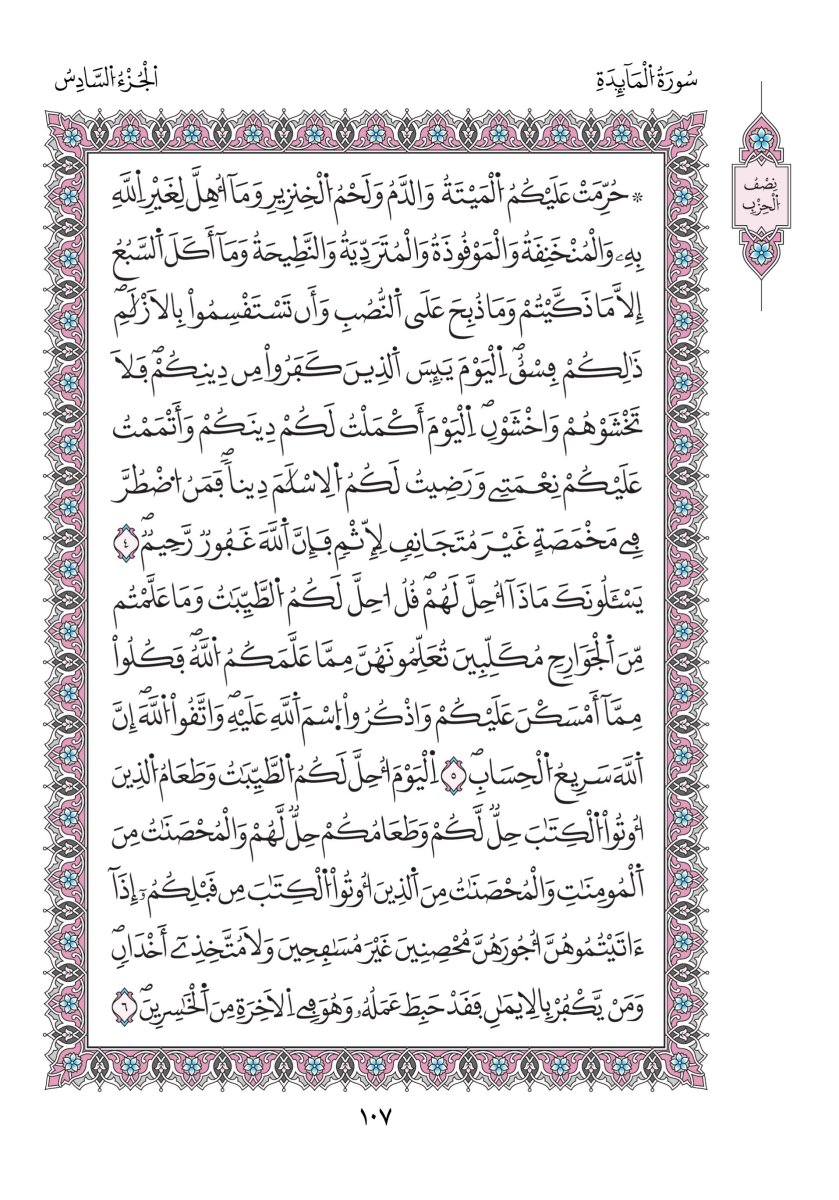 سُورَةُ الْمَآئِدَةِ
الْجُزْءُ السَّادِسُ
نِصْفُ
الْحِزْبِ
* حُرِّمَتْ عَلَيْكُمُ الْمَيْتَةُ وَالدَّمُ وَلَحْمُ الْخِنزِيرِ وَمَآ أُهِلَّ لِغَيْرِ اِللَّهِ
بِهِۦ وَالْمُنْخَنِفَةُ وَالْمَوْفُوذَةُ وَالْمُتَرَدِّيَةُ وَالنَّطِيحَةُ وَمَآ أَكَلَ اَلسَّبُعُ
إِلاَّ مَا ذَكَّيْتُمْ وَمَا ذُبِحَ عَلَي اَلنُّصُبِ وَأَن تَسْتَفْسِمُواْ بِالاَزْلَٰمِۖ
ذَٰلِكُمْ فِسْقٌۖ اِلْيَوْمَ يَئِسَ اَلذِينَ كَفَرُواْ مِن دِينِكُمْۖ فَلاَ
تَخْشَوْهُمْ وَاخْشَوْنِۖ اِلْيَوْمَ أَكْمَلْتُ لَكُمْ دِينَكُمْ وَأَتْمَمْتُ
عَلَيْكُمْ نِعْمَتِے وَرَضِيتُ لَكُمُ اُلِاسْلَٰمَ دِيناٗۖ فَمَنُ اُضْطُرَّ
فِے مَخْمَصَةٍ غَيْرَ مُتَجَانِفٖ لِإِثْمٖ فَإِنَّ اَللَّهَ غَفُورٞ رَّحِيمٞۖ ٤
يَسْـَٔلُونَكَ مَاذَآ أُحِلَّ لَهُمْۖ قُلُ ا۟حِلَّ لَكُمُ اُلطَّيِّبَٰتُ وَمَا عَلَّمْتُم
مِّنَ اَلْجَوَارِحِ مُكَلِّبِينَ تُعَلِّمُونَهُنَّ مِمَّا عَلَّمَكُمُ اُللَّهُۖ فَكُلُواْ
مِمَّآ أَمْسَكْنَ عَلَيْكُمْ وَاذْكُرُواْ اُسْمَ اَللَّهِ عَلَيْهِۖ وَاتَّقُواْ اُللَّهَۖ إِنَّ
اَللَّهَ سَرِيعُ اُلْحِسَابِۖ ٥ اِلْيَوْمَ أُحِلَّ لَكُمُ اُلطَّيِّبَٰتُ وَطَعَامُ اُلذِينَ
أُوتُواْ اُلْكِتَٰبَ حِلّٞ لَّكُمْ وَطَعَامُكُمْ حِلّٞ لَّهُمْ وَالْمُحْصَنَٰتُ مِنَ
اَلْمُومِنَٰتِ وَالْمُحْصَنَٰتُ مِنَ اَلذِينَ أُوتُواْ اُلْكِتَٰبَ مِن قَبْلِكُمُۥٓ إِذَآ
ءَاتَيْتُمُوهُنَّ أُجُورَهُنَّ مُحْصِنِينَ غَيْرَ مُسَٰفِحِينَ وَلاَ مُتَّخِذِےٓ أَخْدَانٖۖ
وَمَنْ يَّكْفُرْ بِالِايمَٰنِ فَقَدْ حَبِطَ عَمَلُهُۥ وَهُوَ فِے اِلَاخِرَةِ مِنَ اَلْخَٰسِرِينَۖ ٦
١٠٧